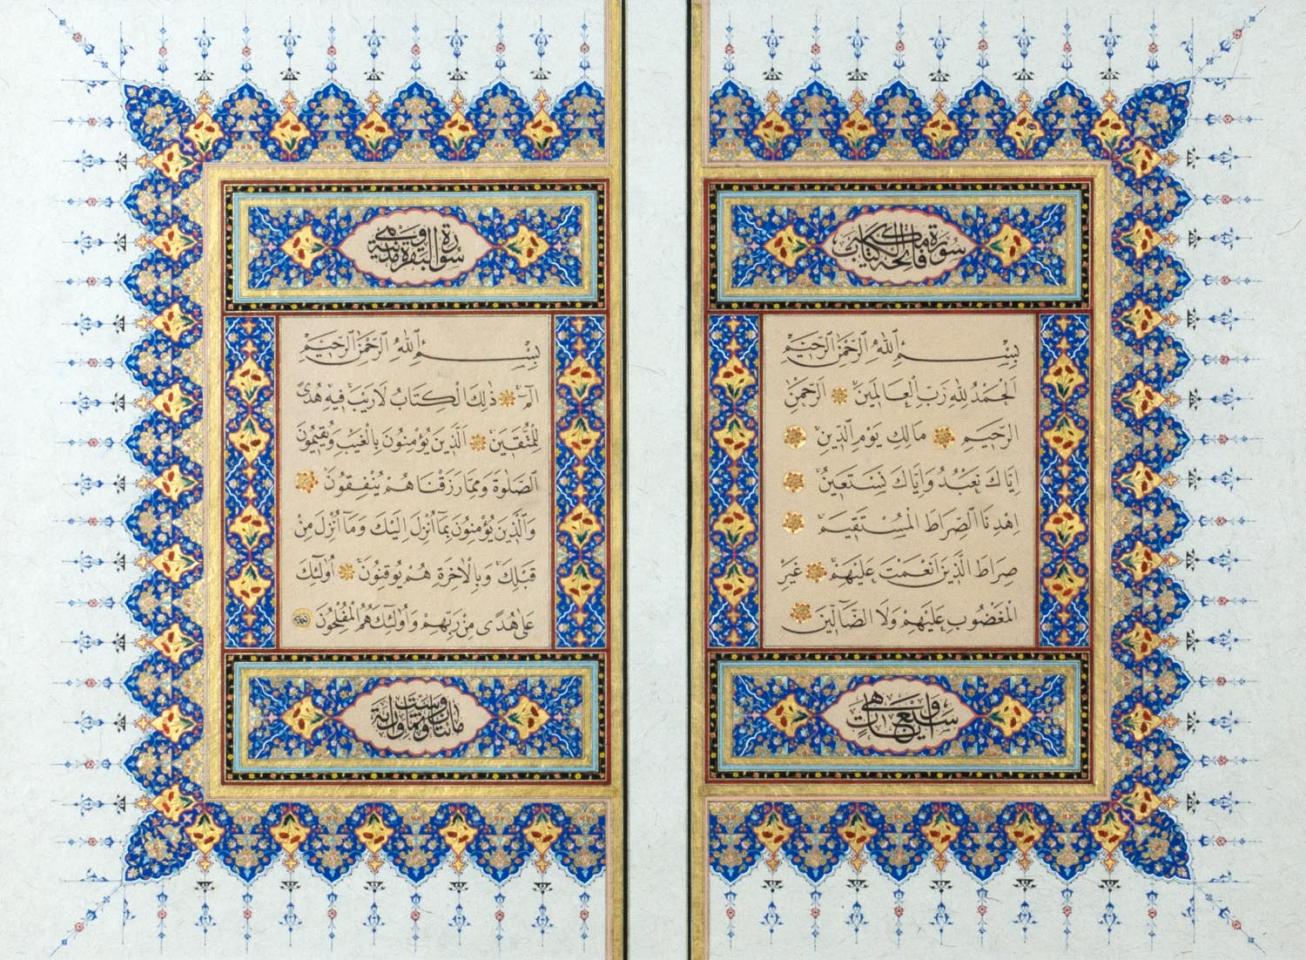 سورة فاتحة الكتاب
بِسْمِ ٱللّٰهِ ٱلرَّحْمٰنِ ٱلرَّحِيمِ
اَلْحَمْدُ لِلّٰهِ رَبِّ الْعَالَمِينَ اَلرَّحْمٰنِ
الرَّحِيمِ مَالِكِ يَوْمِ الدِّينِ
اِيَّاكَ نَعْبُدُ وَاِيَّاكَ نَسْتَعِينُ
اِهْدِنَا الصِّرَاطَ الْمُسْتَقِيمَ
صِرَاطَ الَّذِينَ اَنْعَمْتَ عَلَيْهِمْ غَيْرِ
الْمَغْضُوبِ عَلَيْهِمْ وَلَا الضَّالِّينَ
وهي سبع آيات
سورة البقرة وهي مدنية
بِسْمِ ٱللّٰهِ ٱلرَّحْمٰنِ ٱلرَّحِيمِ
الٓمٓ ذٰلِكَ الْكِتَابُ لَا رَيْبَ فِيهِ هُدًى
لِلْمُتَّقِينَ اَلَّذِينَ يُؤْمِنُونَ بِالْغَيْبِ وَيُقِيمُونَ
الصَّلٰوةَ وَمِمَّا رَزَقْنَاهُمْ يُنْفِقُونَ
وَالَّذِينَ يُؤْمِنُونَ بِمَآ اُنْزِلَ اِلَيْكَ وَمَآ اُنْزِلَ مِنْ
قَبْلِكَ وَبِالْاٰخِرَةِ هُمْ يُوقِنُونَ اُولٰٓئِكَ
عَلٰى هُدًى مِنْ رَبِّهِمْ وَاُولٰٓئِكَ هُمُ الْمُفْلِحُونَ
مائتان وست وثمانون آية